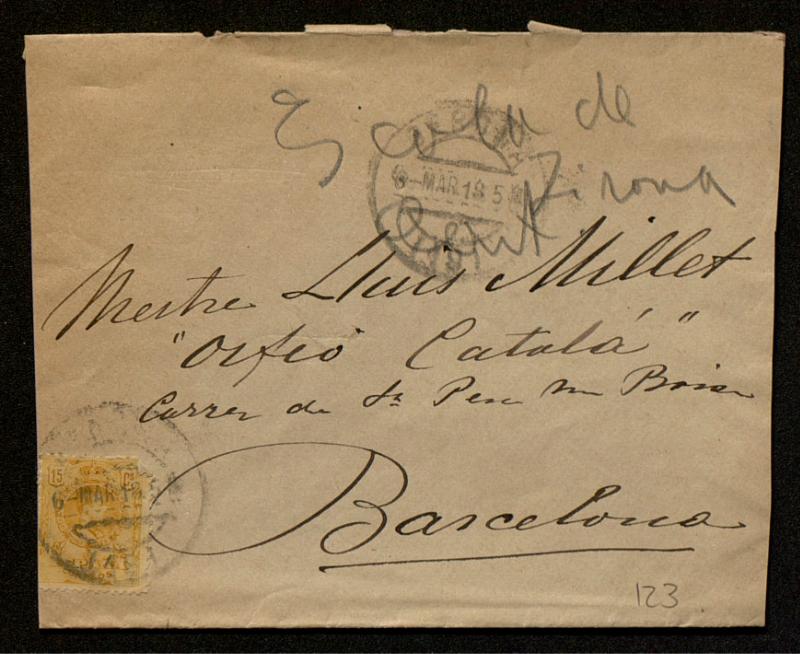 Escola de
Girona
6-MAR.18 5
Mestre Lluis Millet
"Orfeó Catalá"
Carrer de St Pere
Barcelona
15 Cs
6-MAR.1
123